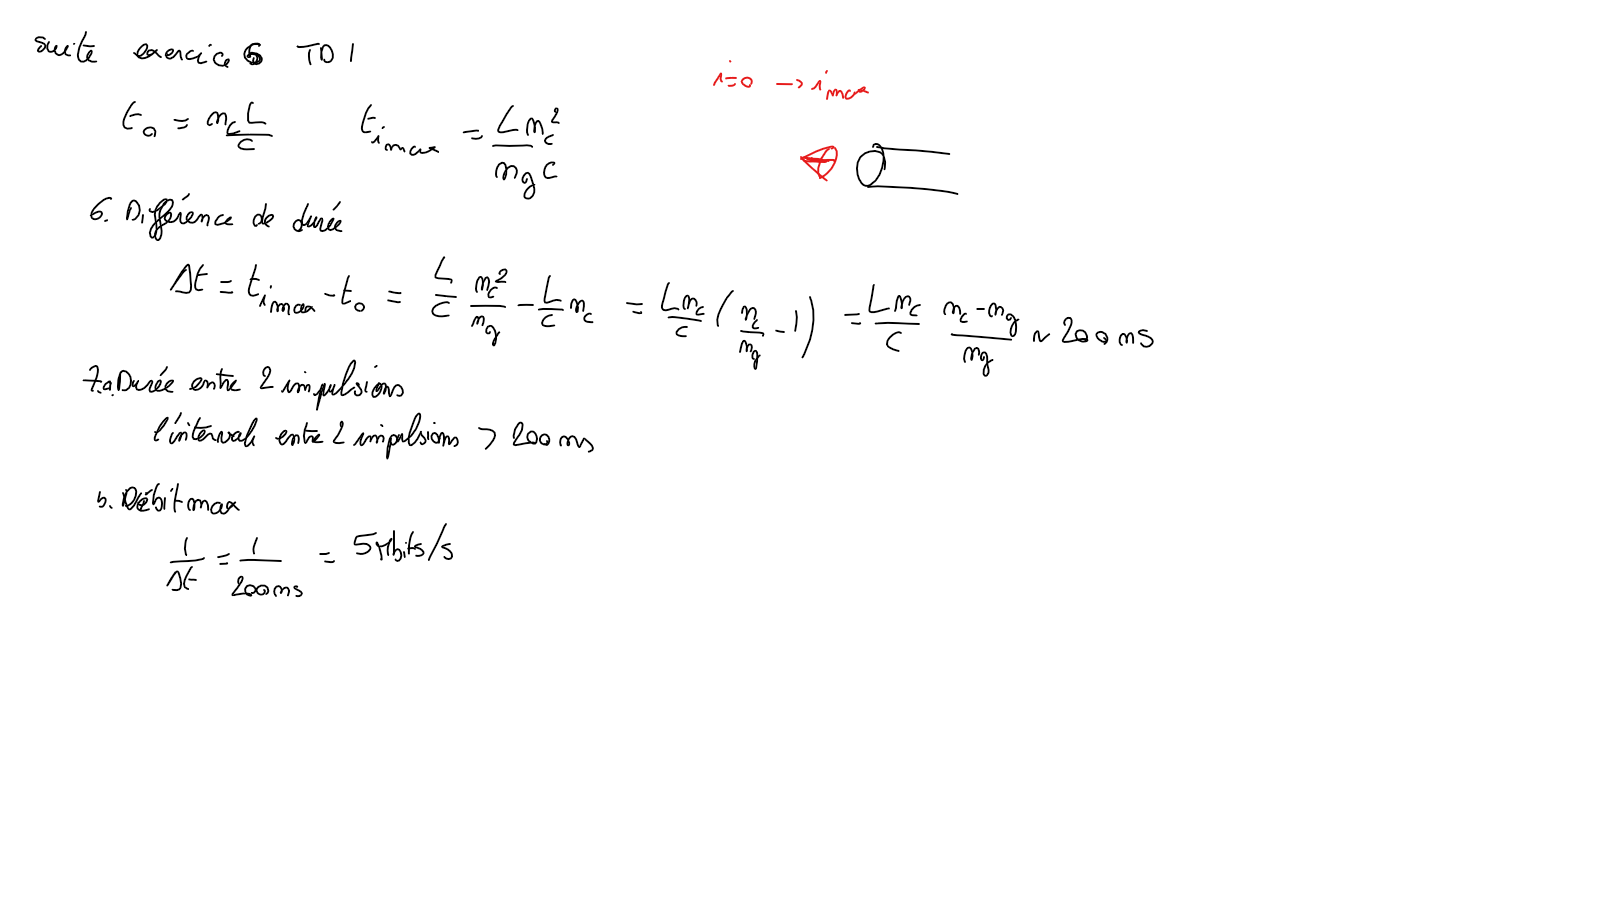 suite exercice 6 TD 1
i=0 → i_max
t_0 = n_c L / c    t_i_max = L n_c² / n_g c
6. Différence de durée
Δt = t_i_max - t_0 = L/c n_c²/n_g - L/c n_c = L n_c/c (n_c/n_g - 1) = L n_c/c (n_c - n_g)/n_g ~ 200 ns
7.a. Durée entre 2 impulsions
l'intervale entre 2 impulsions > 200 ns
b. Débit max
1/Δt = 1/200 ns = 5 Mbits/s